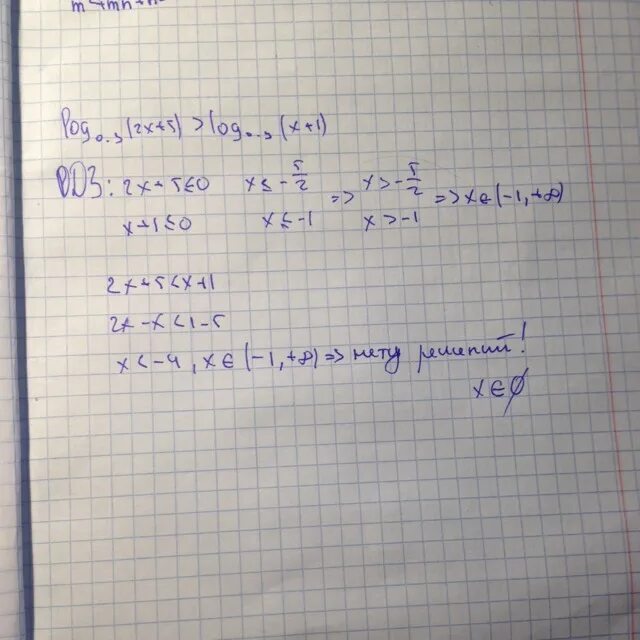 log₀.₃(2x+5) > log₀.₃(x+1)
ОДЗ: 2x+5≤0 x≤-5/2 => x>-5/2 => x∈(-1,+∞)
x+1≤0 x≤-1 x>-1
2x+5<x+1
2x-x<1-5
x<-4, x∈(-1,+∞) => нету решений!
x∈∅